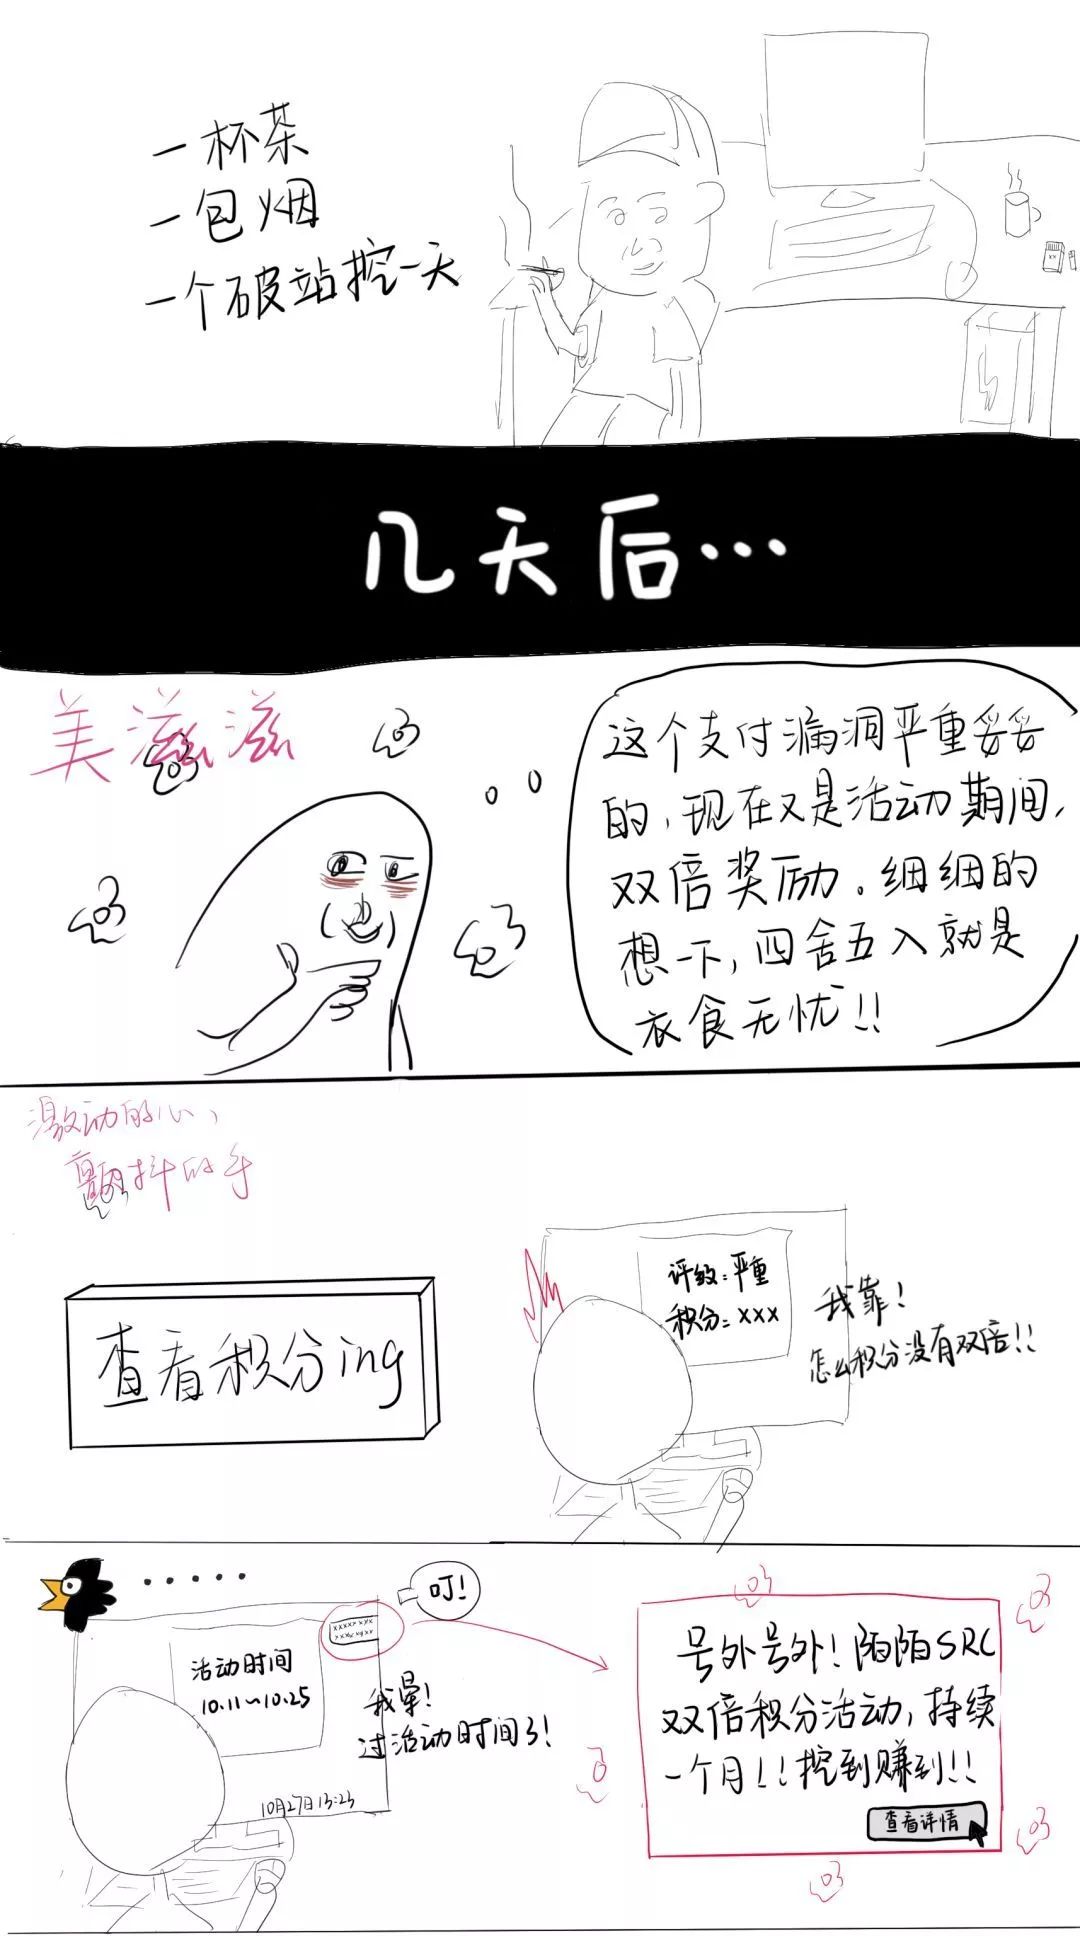 一杯茶
一包烟
一个破站挖一天
xx
几天后...
美滋滋
这个支付漏洞严重妥妥
的,现在又是活动期间,
双倍奖励。细细的
想一下,四舍五入就是
衣食无忧!!
激动的心,
颤抖的手
查看积分ing
评级:严重
积分:xxx
我靠!
怎么积分没有双倍!!
······
叮!
活动时间
10.11~10.25
我晕!
过活动时间了!
10月27日 13:23
号外号外!陌陌SRC
双倍积分活动,持续
一个月!!挖到赚到!!
查看详情